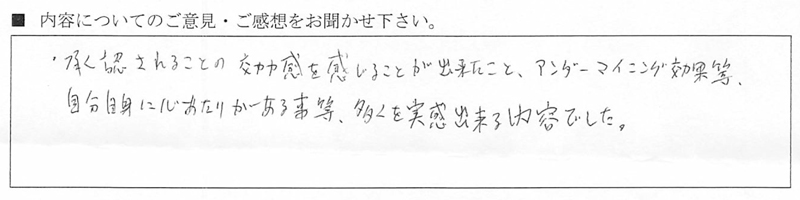 ■ 内容についてのご意見・ご感想をお聞かせ下さい。
・承認されることの効力感を感じることが出来たこと、アンダーマイニング効果等、
自分自身に心あたりがある事等、多くを実感出来る内容でした。